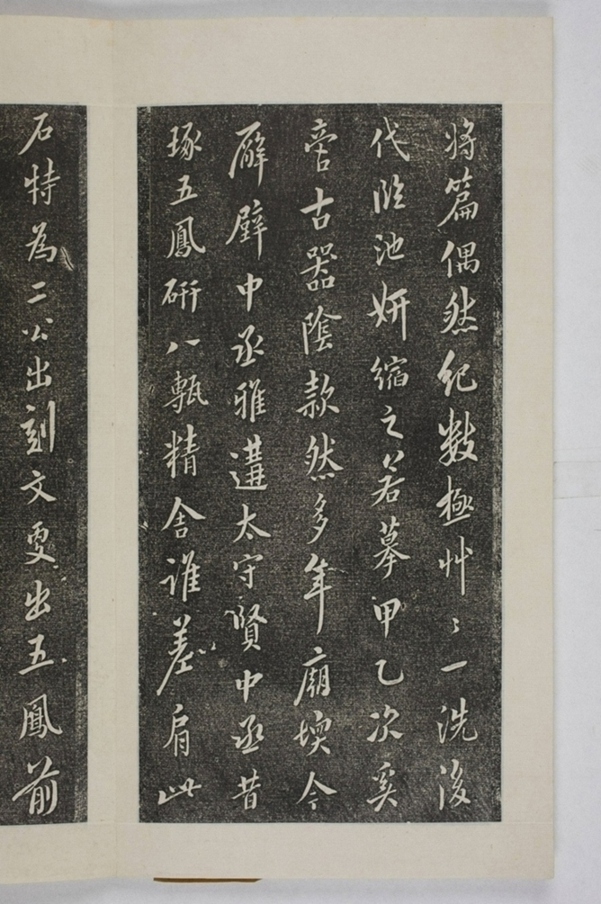 将篇偶然纪数極艸〻一洗後
代臨池妍縮之若摹甲乙次奚
啻古器陰款然多年廟堧今
廦壁中丞雅遘太守賢中丞昔
琢五鳳硏八甎精舍誰差肩此
石特為二公出刻文更出五鳳前